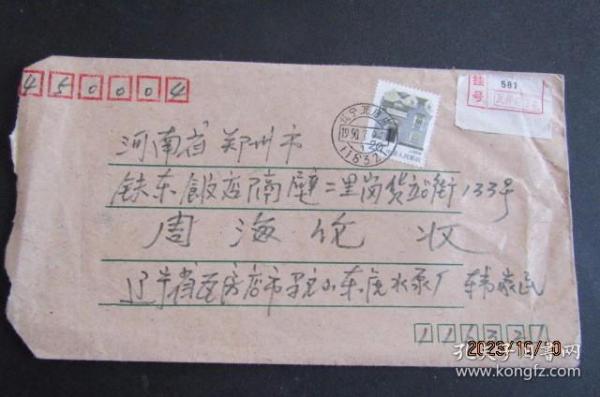 450004
挂号
581
辽宁
1990
河南省 郑州市
铁东饭店隔壁二里岗货站街133号
周海伦 收
辽宁省瓦房店市 水泵厂
116321
2023/10/10
孔夫子旧书网
www.kongfz.com